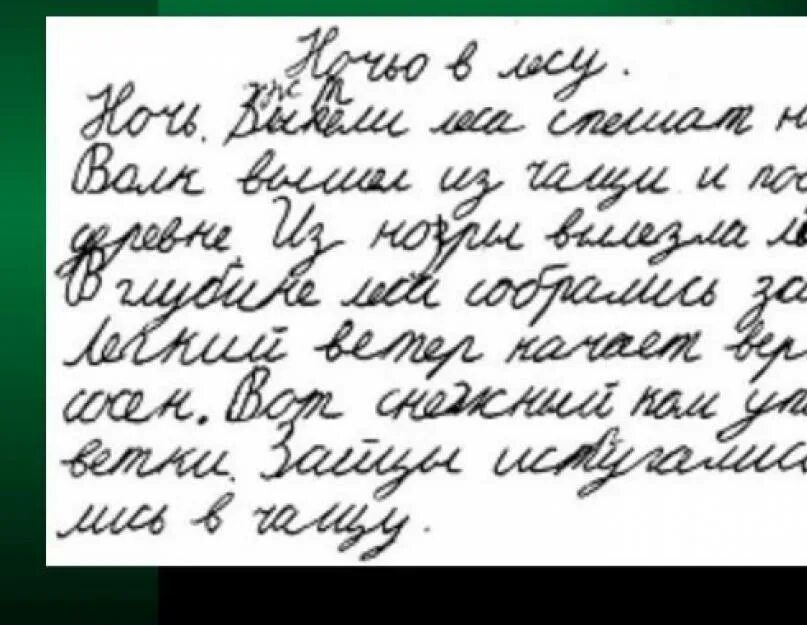 Ночью в лесу.
Ночь. леса спешат н
Волк вышел из чащи и пос
деревне. Из вылезла
В глубине леса собрались за
Легкий ветер качает вер
сосен. Вот снежный ком уп
ветки. Зайцы испугались
лись в чащу.